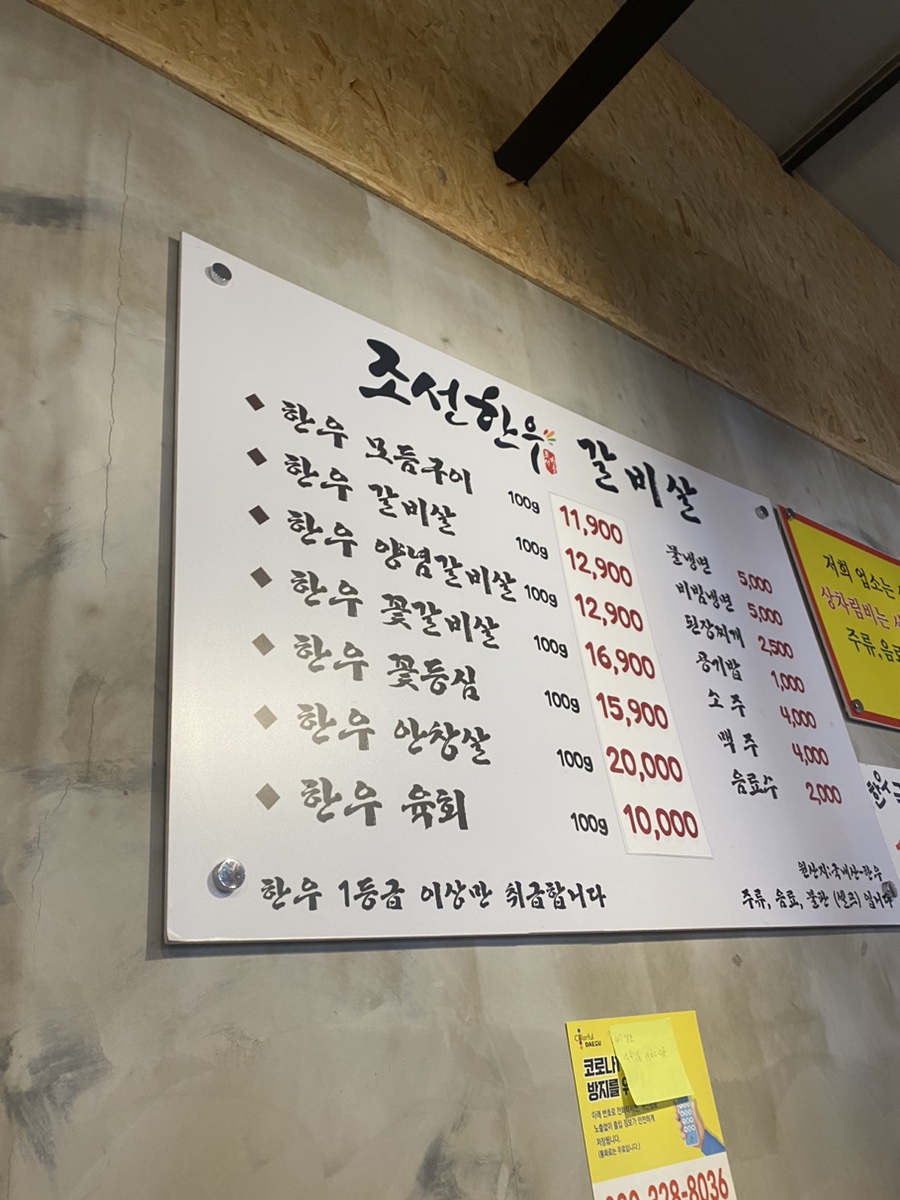 조선한우 갈비살
한우 모듬구이 100g 11,900
한우 갈비살 100g 12,900
한우 양념갈비살 100g 12,900
한우 꽃갈비살 100g 16,900
한우 꽃등심 100g 15,900
한우 안창살 100g 20,000
한우 육회 100g 10,000
물냉면 5,000
비빔냉면 5,000
된장찌개 2,500
공기밥 1,000
소주 4,000
맥주 4,000
음료수 2,000
한우 1등급 이상만 취급합니다
원산지:국내산-한우
주류, 음료, 불판 (셀프) 입니다
저희 업소는
상차림비는
주류,음료
Colorful DAEGU
코로나
방지를
아래 번호로
노출없이 출입 정보가 안전하게
저장됩니다.
(통화료는 무료입니다.)
228-8036